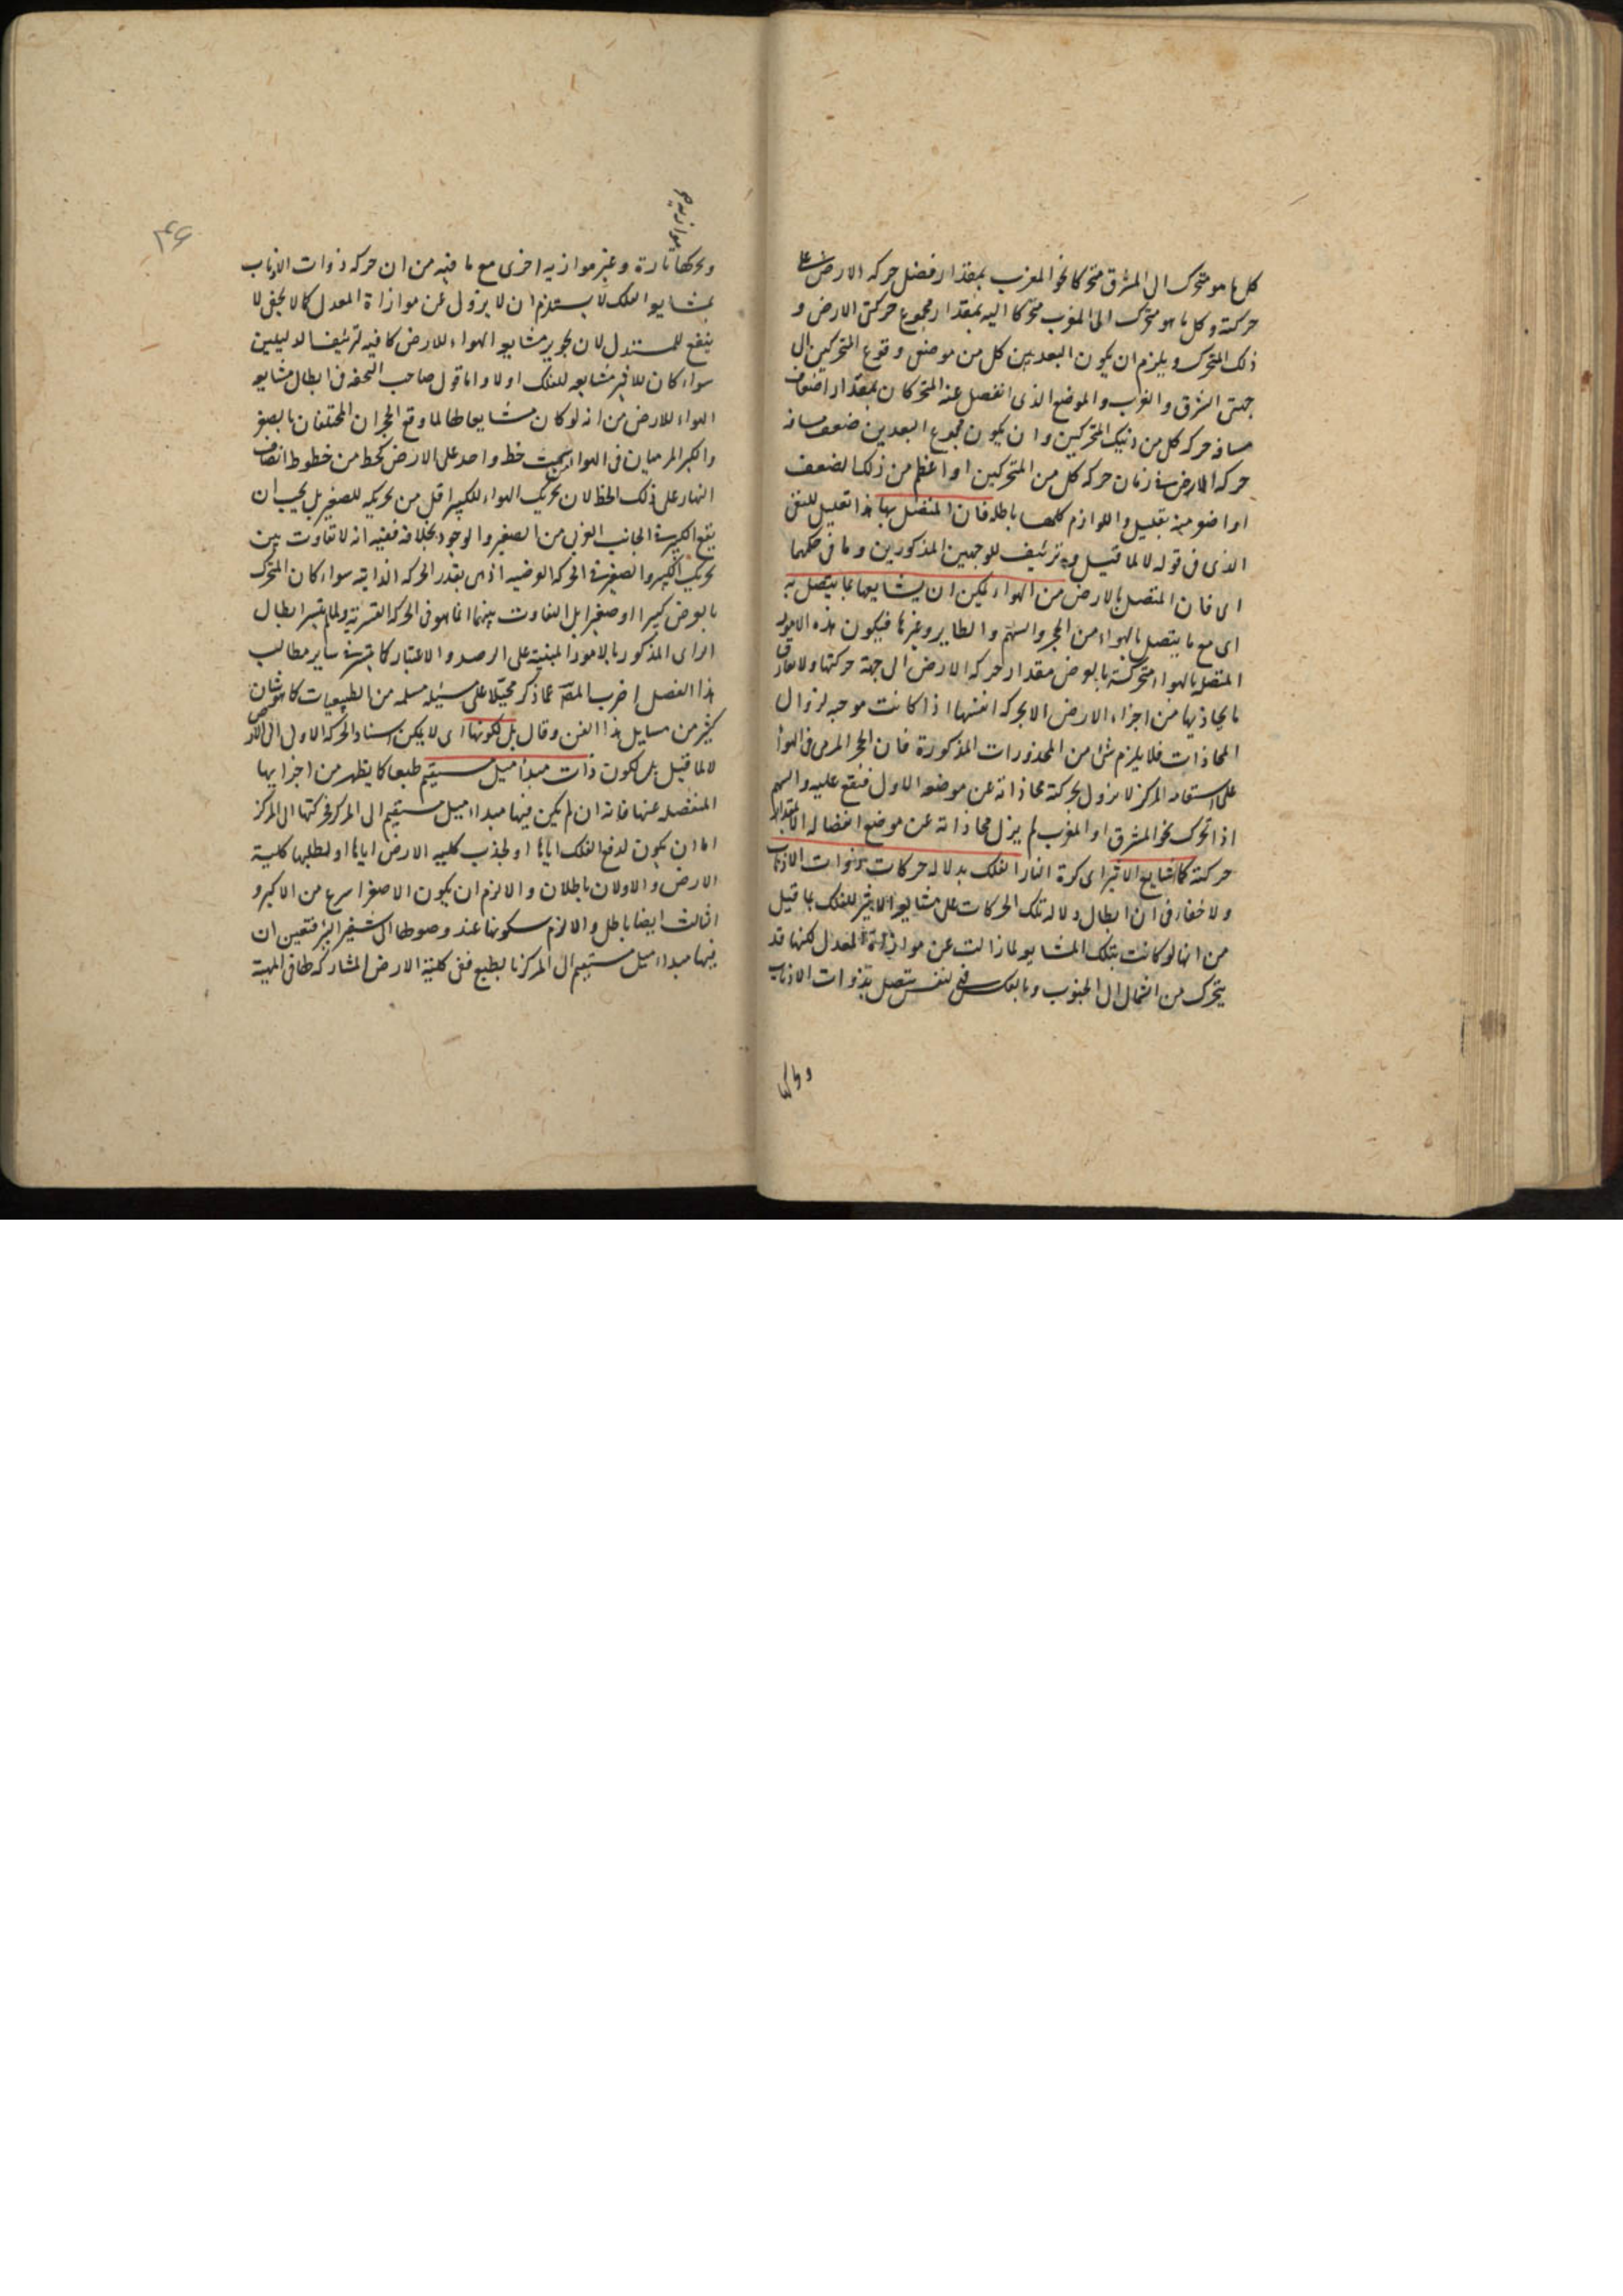 كل ما هو متحرك الى المشرق متحركا نحو المغرب بمقدار فضل حركه الارض على
حركته وكل ما هو متحرك الى المغرب متحركا اليه بمقدار مجموع حركتى الارض و
ذلك المتحرك ويلزم ان يكون البعد بين كل من موضعى وقوع المتحركين الى
جهتى الشرق والغرب والموضع الذى انفصل عنه المتحركان بمقدار اضعاف
مسافه حركه كل من ذينك المتحركين وان يكون مجموع البعدين ضعف مسافه
حركه الارض فى زمان حركه كل من المتحركين او اعظم من ذلك الضعف
او اصغر منه بقليل واللوازم كلها باطله فان المتصل بها هذا تعليل للنفى
الذى فى قوله لا لما قيل وتزئيف للوجهين المذكورين وما فى حكمهما
اى فان المتصل بالارض من الهواء يمكن ان يشايعها بما يتصل به
اى مع ما يتصل بالهواء من الحجر والسهم والطاير وغيرها فيكون هذه الامور
المتصله بالهواء متحركة بالعرض مقدار حركه الارض الى جهة حركتها ولا تفارق
ما يحاذيها من اجزاء الارض الا بحركه انفسها اذا كانت موجبه لزوال
المحاذات فلا يلزم شئ من المحذورات المذكورة فان الحجر المرمى فى الهواء
على استقامه المركز لا يزول بحركته محاذاته عن موضعه الاول فيقع عليه والسهم
اذا تحرك نحو المشرق او المغرب لم يزل محاذاته عن موضع انفصاله الا بمقدار
حركته كما يشايع الاثير اى كرة النار الفلك بدلاله حركات ذوات الاذناب
ولا خفاء فى ان ابطال دلاله تلك الحركات على مشايعه الاثير للفلك بما قيل
من انها لو كانت بتلك المشايعه لما زالت عن موازاة المعدل لكنها قد
يتحرك من الشمال الى الجنوب وبالعكس فهى لنفس يتصل بذوات الاذناب
وتحركها
وتحركها تارة وغير موازيه اخرى مع ما فيه من ان حركه ذوات الاذناب
بمشايعه الفلك لا يستلزم ان لا يزول عن موازاة المعدل كما لا يخفى لا
ينفع للمستدل لان تجويز مشايعه الهواء للارض كافيه لتزئيف الدليلين
سواء كان للاثير مشايعه للفلك اولا واما قول صاحب التحفه فى ابطال مشايعه
الهواء للارض من انه لو كان مشايعا لها لما وقع الحجران المختلفان بالصغر
والكبر المرميان فى الهواء سمت خط واحد على الارض كخط من خطوط انصاف
النهار على ذلك الخط لان تحريك الهواء للكبير اقل من تحريكه للصغير بل يجب ان
يقع الكبير فى الجانب الغربى من الصغير والوجود بخلافه ففيه انه لا تفاوت بين
تحريك الكبير والصغير فى الحركه العرضيه اذ هى بقدر الحركه الذاتيه سواء كان المتحرك
بالعرض كبيرا او صغيرا بل التفاوت بينهما انما هو فى الحركه القسرية ولما لم يتيسر ابطال
الراى المذكور بالامور المبنية على الرصد والاعتبار كما يتيسر فى ساير مطالب
هذا الفصل اضرب المص عما ذكر محيلا على مسئله مسلمه من الطبيعيات كما هو شان
كثير من مسايل هذا الفن وقال بل لكونها اى لا يمكن اسناد الحركه الاولى الى الارض
لا لما قيل بل لكون ذات مبدأ ميل مستقيم طبعا كما يظهر من اجزايها
المنفصله عنها فانه ان لم يكن فيها مبداء ميل مستقيم الى المركز فحركتها الى المركز
اما ان يكون لدفع الفلك اياها او لجذب كلية الارض اياها او لطلبها كلية
الارض والاولان باطلان والا لزم ان يكون الاصغر اسرع من الاكبر و
الثالث ايضا باطل والا لزم سكونها عند وصولها الى شفير البئر فتعين ان
فيها مبداء ميل مستقيم الى المركز بالطبع ففى كلية الارض المشاركه لها فى المهية